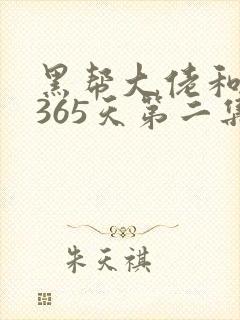 黑帮大佬和
365天第二集
朱天祺